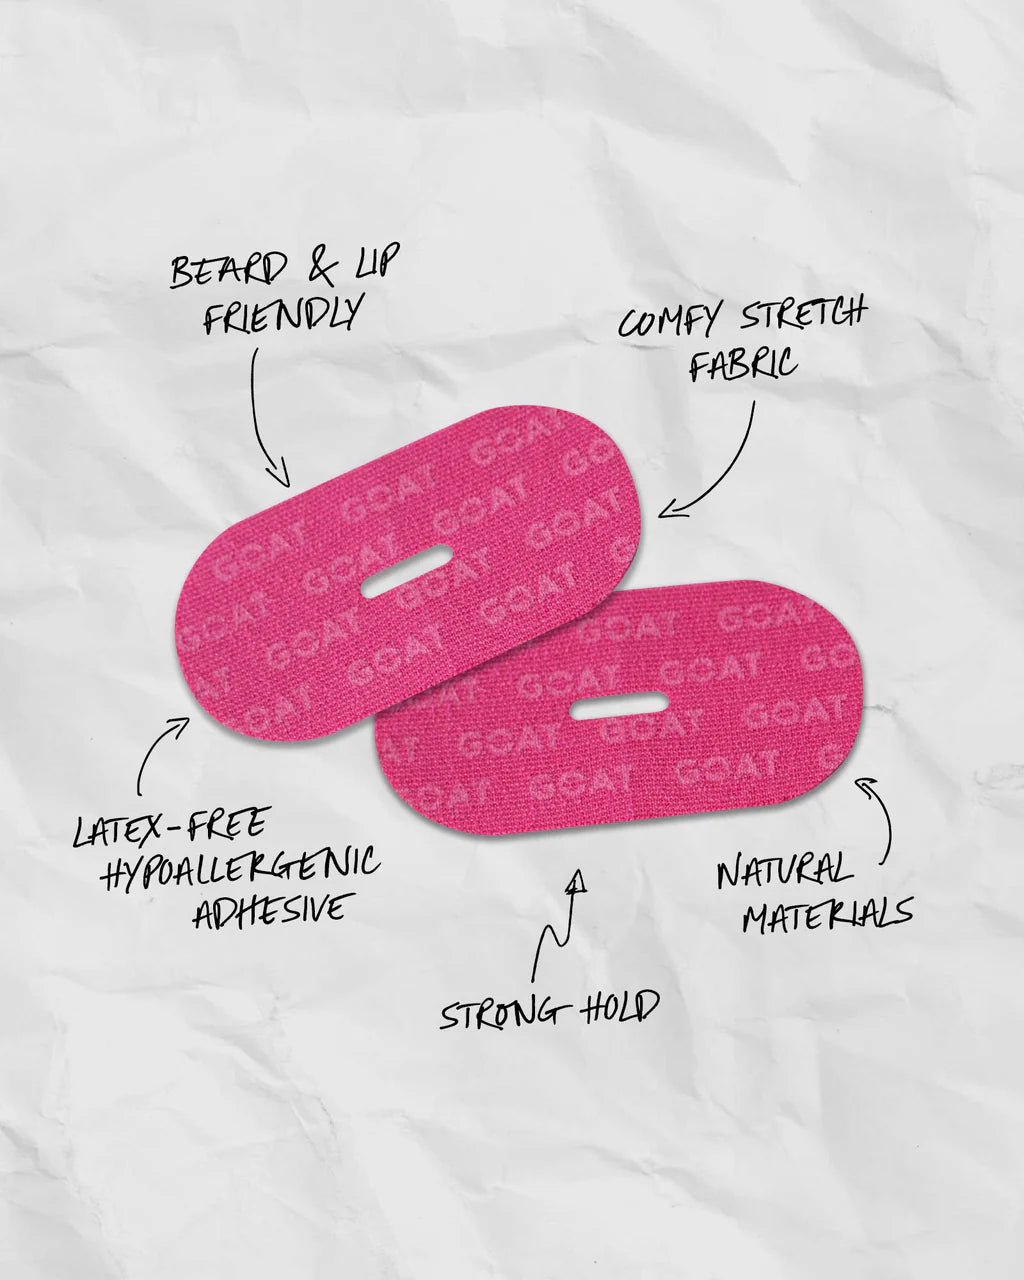 BEARD & LIP
FRIENDLY
COMFY STRETCH
FABRIC
GOAT GOAT GO
GOAT GOAT GOAT
GOAT GOAT GOAT G
AT GOAT GOAT GOAT
OAT GOAT GOAT
GOAT GOAT
AT GOAT GOAT GO
AT GOAT GOAT GOAT
OAT GOAT GOAT G
LATEX-FREE
HYPOALLERGENIC
ADHESIVE
NATURAL
MATERIALS
STRONG HOLD